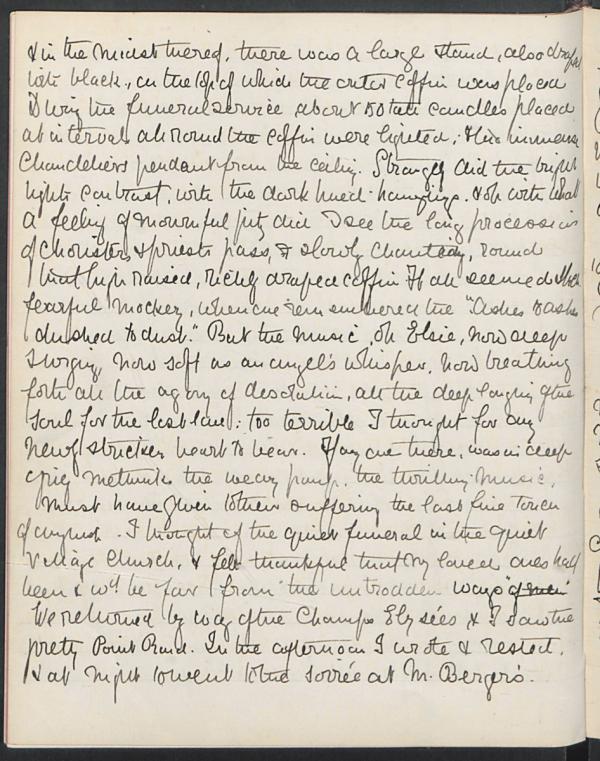 & in the midst thereof, there was a large stand, also draped
with black, on the top of which the outer coffin was placed
During the funeral service about 50 tall candles placed
at intervals all round the coffin were lighted, & two immense
Chandeliers pendant from the ceiling. Strangely did the bright
lights contrast, with the dark hued hangings. & oh with what
a feeling of mournful pity did I see the long procession
of choristers & priests pass, & slowly chanting, round
that high raised, richly draped coffin It all seemed such
fearful mockery, when one remembered the "Ashes to ashes
dust to dust." But the music, oh Elsie, now deep
surging now soft as an angel's whisper, now breathing
forth all the agony of desolation, all the deep longing of the
soul for the lost love: too terrible I thought for any
newly stricken heart to bear. If any one there, was in deep
grief methinks the weary pomp, the thrilling music,
must have given to their suffering the last fine touch
of anguish. I thought of the quiet funeral in the quiet
Village Church, & felt thankful that my loved ones had
been & wd be far from "the untrodden ways" of men
We returned by way of the Champs Elysées & I saw the
pretty Point Rond. In the afternoon I wrote & rested,
& at night to went to the soirée at M. Berger's.